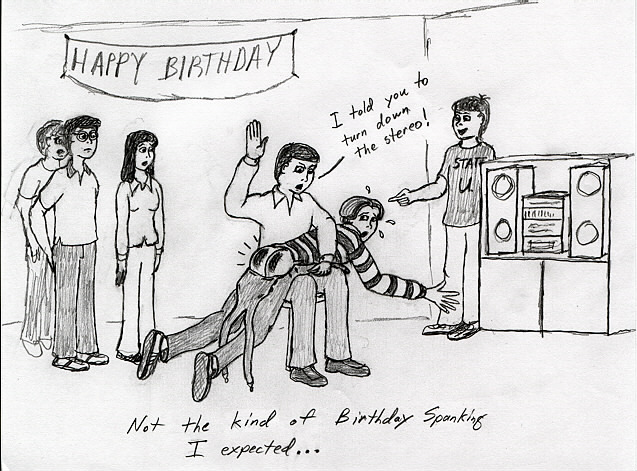 HAPPY BIRTHDAY
I told you to
turn down
the stereo!
STATE
U.
Not the kind of Birthday Spanking
I expected...